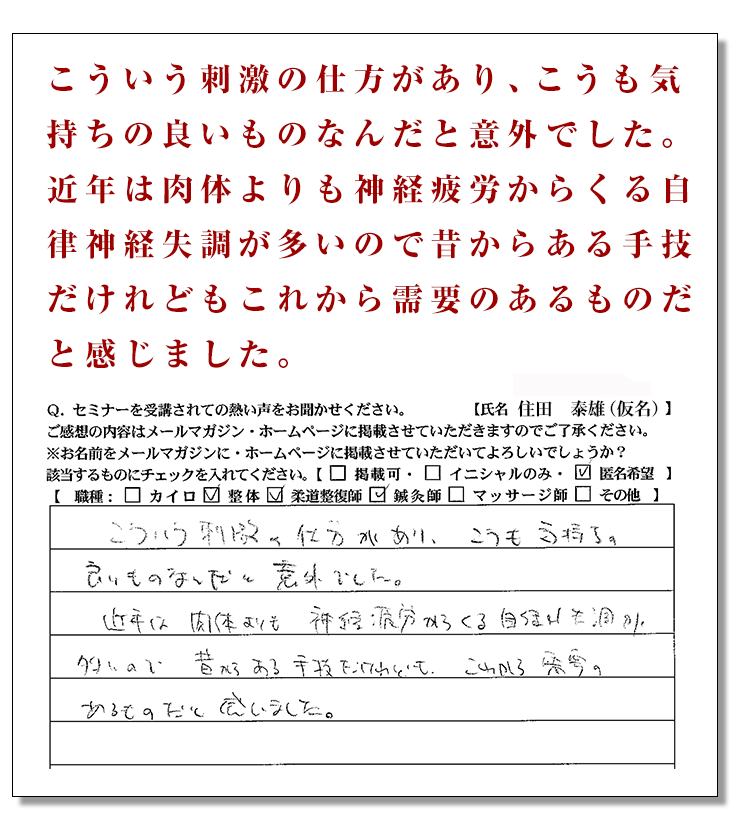 こういう刺激の仕方があり、こうも気
持ちの良いものなんだと意外でした。
近年は肉体よりも神経疲労からくる自
律神経失調が多いので昔からある手技
だけれどもこれから需要のあるものだ
と感じました。
Q. セミナーを受講されての熱い声をお聞かせください。 【氏名 住田 泰雄（仮名）】
ご感想の内容はメールマガジン・ホームページに掲載させていただきますのでご了承ください。
※お名前をメールマガジンに・ホームページに掲載させていただいてよろしいでしょうか？
該当するものにチェックを入れてください。【 □ 掲載可・ □ イニシャルのみ・ ☑ 匿名希望 】
【 職種： □ カイロ ☑ 整体 ☑ 柔道整復師 ☑ 鍼灸師 □ マッサージ師 □ その他 】
こういう刺激の仕方があり、こうも気持ちの
良いものなんだと意外でした。
近年は肉体よりも神経疲労からくる自律神失調が
多いので昔からある手技だけれども、これから需要の
あるものだと感じました。